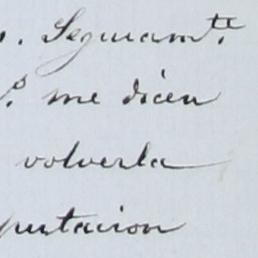 s. Seguramte.
P. me dicen
volverla
putacion